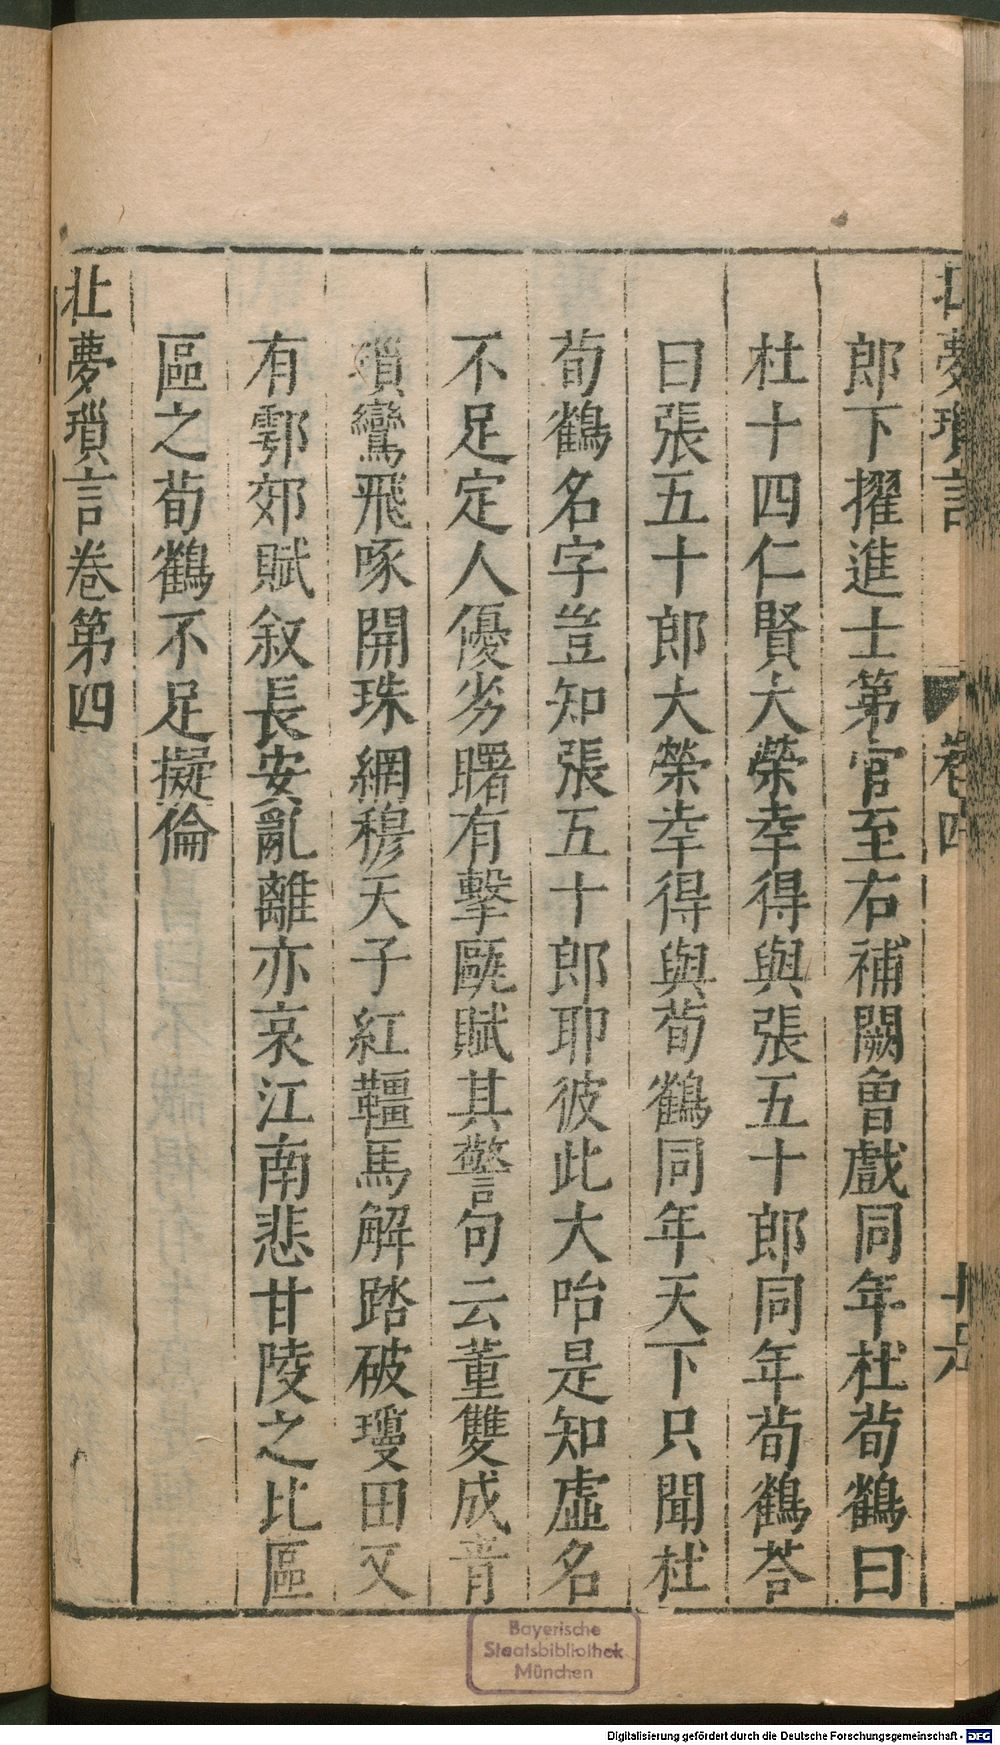 北夢瑣言 卷四
郎下擢進士第官至右補闕曾戲同年杜荀鶴曰
杜十四仁賢大榮幸得與張五十郎同年荀鶴荅
曰張五十郎大榮幸得與荀鶴同年天下只聞杜
荀鶴名字豈知張五十郎耶彼此大咍是知虛名
不足定人優劣曙有擊甌賦其警句云董雙成青
瑣鸞飛啄開珠網穆天子紅韁馬解踏破瓊田又
有鄠郊賦叙長安亂離亦哀江南悲甘陵之比區
區之荀鶴不足擬倫
北夢瑣言卷第四
Bayerische
Staatsbibliothek
München
Digitalisierung gefördert durch die Deutsche Forschungsgemeinschaft - DFG